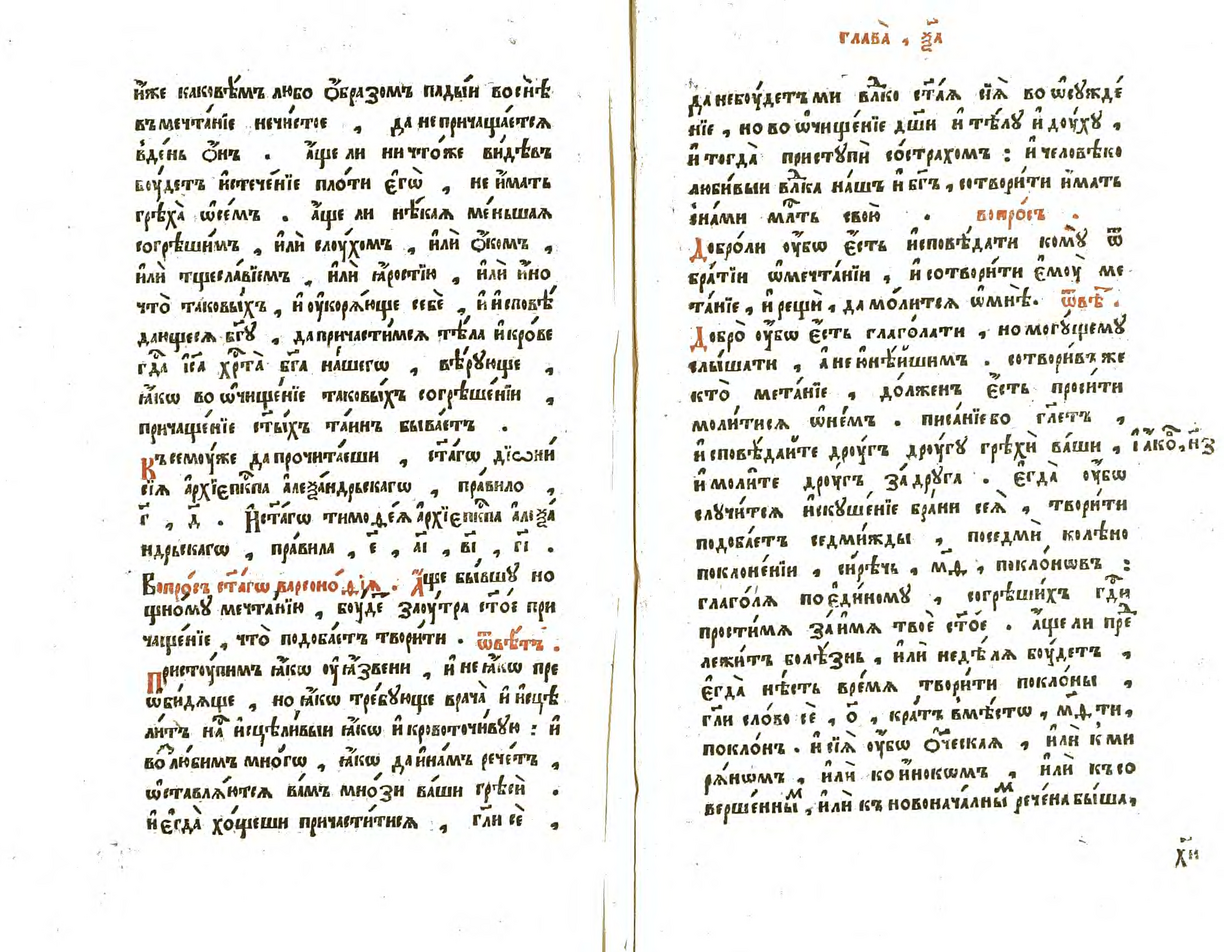 и҆́же каковѣ́мъ любо ѻ҆́бразомъ пады́и воснѣ̀
въмечта́нїе нечи́стое , да непричаща́ется
вде́нь ѻ҆́нъ . а҆́ще ли ничто́же ви́дѣвъ
бꙋ́детъ и҆стече́нїе пло́ти є҆гѡ̀ , не и҆́мать
грѣха̀ ѡ҆се́мъ . а҆́ще ли нѣ́кая ме́ньшая
согрѣши́мъ , и҆лѝ слꙋ́хомъ , и҆лѝ ѻ҆́комъ ,
и҆лѝ тщесла́вїемъ , и҆лѝ ꙗ҆́ростїю , и҆лѝ и҆́но
что̀ таковы́хъ , и҆ оу҆коря́юще себѐ , и҆ и҆сповѣ́
дающеся бг҃ꙋ , да причасти́мся тѣ́ла и҆ кро́ве
гдⷭ҇а і҆с҃а хрⷭ҇та̀ бг҃а на́шегѡ , вѣ́рꙋюще ,
ꙗ҆́кѡ во ѡ҆чище́нїе таковы́хъ согрѣше́нїи ,
причаще́нїе ст҃ы́хъ та́инъ быва́етъ .
Къ семꙋ́же да прочита́еши , ст҃а́гѡ дїѡни́
сїѧ а҆рхїєпⷭ҇кпа а҆леѯа́ндрьскагѡ , пра́вило ,
г҃ , д҃ . И҆ ст҃а́гѡ тимоѳе́ѧ а҆рхїєпⷭ҇кпа а҆леѯа́
ндрьскагѡ , пра́вила , є҃ , а҃і , в҃і , г҃і .
Вопро́съ ст҃а́гѡ варсоно́фїѧ . А҆́ще бы́вшꙋ но
щно́мꙋ мечта́нїю , бꙋ́де заꙋ́тра ст҃о́е при
чаще́нїе , что̀ подоба́етъ твори́ти . ѿвѣ́тъ .
Пристꙋ́пимъ ꙗ҆́кѡ оу҆ꙗ҆́звени , и҆ не ꙗ҆́кѡ пре
ѡби́дяще , но ꙗ҆́кѡ тре́бꙋюще врача̀ и҆ и҆сцѣ
ли́тъ на́ⷭ и҆сцѣли́выи ꙗ҆́кѡ и҆ кровоточи́вꙋю : и҆
во́ⷥлю́бимъ мно́гѡ , ꙗ҆́кѡ да и҆ на́мъ рече́тъ ,
ѡ҆ставля́ются ва́мъ мно́зи ва́ши грѣсѝ .
и҆ є҆гда̀ хо́щеши причасти́тися , гл҃и сѐ ,
глава̀ , ѯ҃а
да небꙋ́детъ ми влⷣко ст҃а́ѧ сїѧ̀ во ѡ҆сꙋжде́
нїе , но во ѡ҆чище́нїе дш҃и и҆ тѣ́лꙋ и҆ дꙋ́хꙋ ,
и҆ тогда̀ пристꙋпѝ состра́хомъ : и҆ человѣко
люби́выи влⷣка на́шъ и҆ бг҃ъ , сотвори́ти и҆́мать
сна́ми млⷭ҇ть свою̀ . вопро́съ .
Доброли оу҆́бѡ є҆́сть и҆сповѣ́дати комꙋ̀ ѿ
бра́тїи ѡ҆мечта́нїи , и҆ сотвори́ти є҆мꙋ̀ ме
та́нїе , и҆ рещѝ , да мо́лится ѡ҆мнѣ̀ . ѿвѣ́ⷮ .
Добро̀ оу҆́бѡ є҆́сть глаго́лати , но могꙋ́щемꙋ
слы́шати , а҆ не ю҆нѣ́йшимъ . сотвори́въ же
кто̀ мета́нїе , до́лженъ є҆́сть проси́ти
моли́тися ѡ҆не́мъ . писа́нїе бо гл҃етъ ,
и҆сповѣ́дайте дрꙋ́гъ дрꙋ́гꙋ грѣхѝ ва́ши , і҆а́ко , н҃з
и҆ моли́те дрꙋ́гъ за́ дрꙋга . Є҆гда̀ оу҆́бѡ
слꙋчи́тся и҆скꙋше́нїе бра́ни сеѧ̀ , твори́ти
подоба́етъ седми́жды , по седмѝ колѣ́но
поклоне́нїи , си́рѣчь , м҃ѳ , покло́нѡвъ :
глаго́лѧ по є҆ди́номꙋ , согрѣши́хъ гдⷭ҇и
прости́мѧ за́ имѧ твоѐ ст҃о́е . а҆́ще ли преⷣ
лежи́тъ болѣ́знь , и҆лѝ недѣ́лѧ бꙋ́детъ ,
є҆гда̀ нѣ́сть вре́мѧ твори́ти покло́ны ,
гл҃и сло́во сѐ , о҃ , кра́тъ вмѣ́стѡ , м҃ѳ.ти ,
покло́нъ . и҆ сїѧ̀ оу҆́бѡ ѻ҆́ческая , и҆лѝ к ми
рѧ́нѡмъ , и҆лѝ ко и҆́нокѡмъ , и҆лѝ къ со
верше́нныⷨ , и҆лѝ къ новонача́лныⷨ рече́на бы́ша ,
х҃н